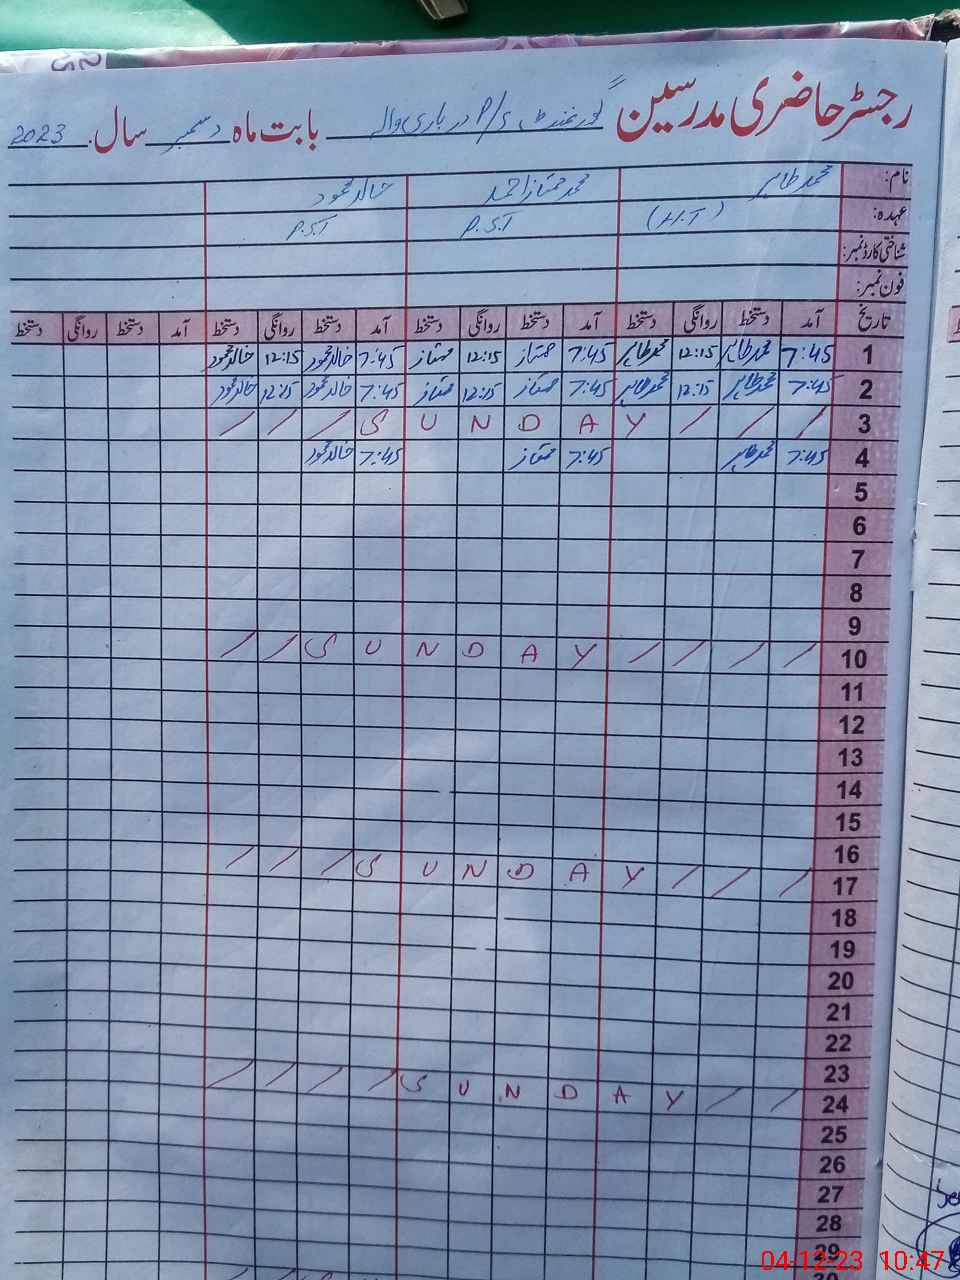 رجسٹر حاضری مدرسین گورنمنٹ P/S درباری والہ بابت ماہ دسمبر سال 2023
نام: محمد طاہر محمد ممتاز احمد خالد محمود
عہدہ: (H.T) P.S.T P.S.T
شناختی کارڈ نمبر:
فون نمبر:
تاریخ آمد دستخط روانگی دستخط آمد دستخط روانگی دستخط آمد دستخط روانگی دستخط آمد دستخط روانگی دستخط
1 7:45 محمد طاہر 12:15 محمد طاہر 7:45 ممتاز 12:15 ممتاز 7:45 خالد محمود 12:15 خالد محمود
2 7:45 محمد طاہر 12:15 محمد طاہر 7:45 ممتاز 12:15 ممتاز 7:45 خالد محمود 12:15 خالد محمود
3 / / / / / / S U N D A Y
4 7:45 محمد طاہر 7:45 ممتاز 7:45 خالد محمود
5
6
7
8
9
10 / / / / / / S U N D A Y
11
12
13
14
15
16
17 / / / / / / S U N D A Y
18
19
20
21
22
23
24 / / / / / / S U N D A Y
25
26
27
28
29
30
04-12-23 10:47